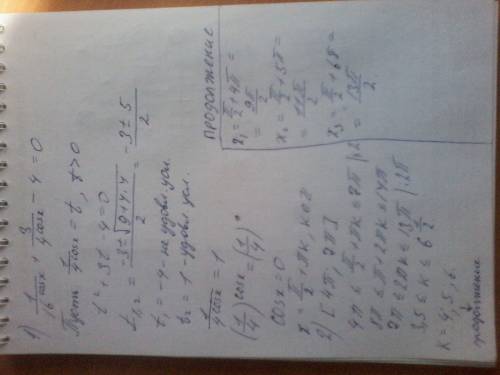 1) 1/16^cosx + 3/4^cosx - 4 = 0
Пусть 1/4^cosx = t, t>0
t² + 3t - 4 = 0
t₁,₂ = (-3 ± √(9+4·4))/2 = (-3 ± 5)/2
t₁ = -4 - не удовл. усл.
t₂ = 1 - удовл. усл.
1/4^cosx = 1
(1/4)^cosx = (1/4)^0
cosx = 0
x = π/2 + πk, k∈Z
2) [4π; 7π]
4π ≤ π/2 + πk ≤ 7π |·2
8π ≤ π + 2πk ≤ 14π
7π ≤ 2πk ≤ 13π |:2π
3,5 ≤ k ≤ 6 1/2
k = 4, 5, 6.
продолжение
ПРОДОЛЖЕНИЕ
x₁ = π/2 + 4π =
= 9π/2
x₂ = π/2 + 5π =
= 11π/2
x₃ = π/2 + 6π =
= 13π/2